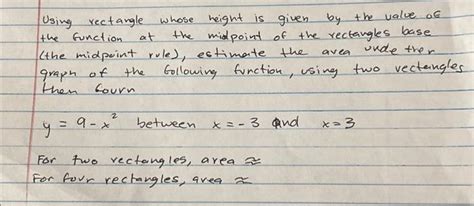 Using rectangle whose height is given by the value of
the function at the midpoint of the rectangles base
(the midpoint rule), estimate the area unde ther
graph of the following function, using two rectangles
then fourn
y = 9 - x² between x = -3 and x = 3
For two rectangles, area ≈
For four rectangles, area ≈